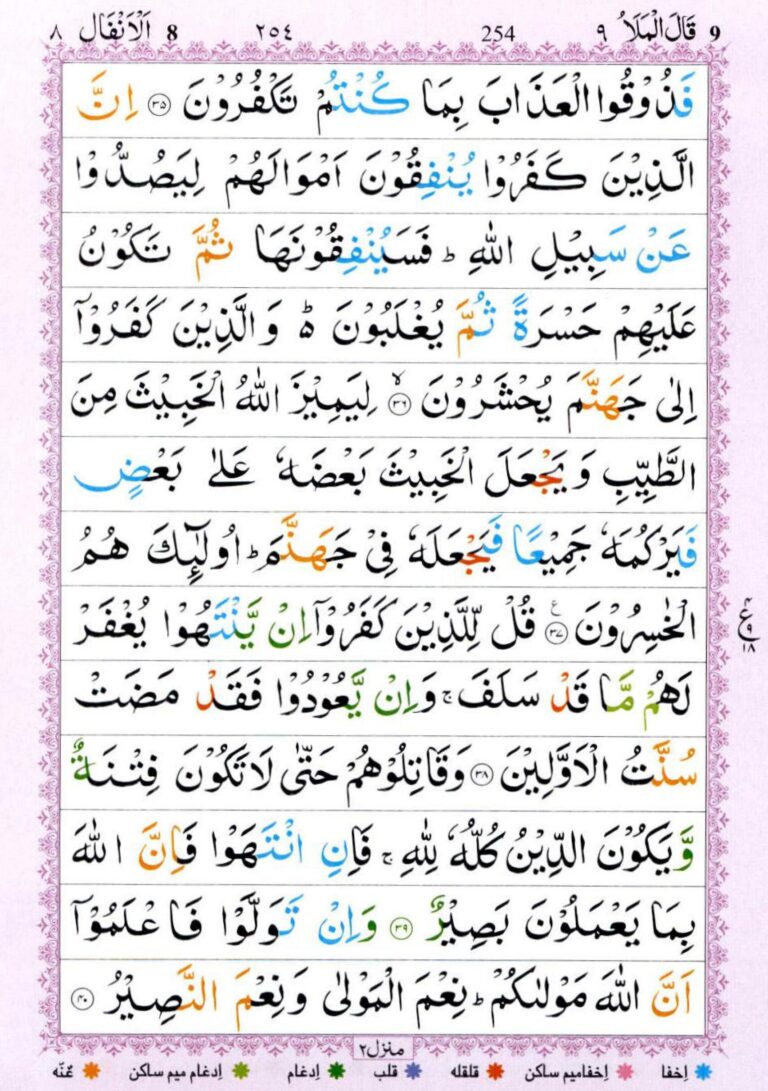 9 قَالَ الْمَلَاُ ٩ 254 ٢٥٤ 8 اَلْاَنْفَال ٨
فَذُوْقُوا الْعَذَابَ بِمَا كُنْتُمْ تَكْفُرُوْنَ ۝۳۵ اِنَّ
الَّذِيْنَ كَفَرُوْا يُنْفِقُوْنَ اَمْوَالَهُمْ لِيَصُدُّوْا
عَنْ سَبِيْلِ اللّٰهِ ؕ فَسَيُنْفِقُوْنَهَا ثُمَّ تَكُوْنُ
عَلَيْهِمْ حَسْرَةً ثُمَّ يُغْلَبُوْنَ ؕ۬ وَالَّذِيْنَ كَفَرُوْۤا
اِلٰى جَهَنَّمَ يُحْشَرُوْنَ ۙ۝۳۶ لِيَمِيْزَ اللّٰهُ الْخَبِيْثَ مِنَ
الطَّيِّبِ وَيَجْعَلَ الْخَبِيْثَ بَعْضَهٗ عَلٰى بَعْضٍ
فَيَرْكُمَهٗ جَمِيْعًا فَيَجْعَلَهٗ فِيْ جَهَنَّمَ ؕ اُولٰٓئِكَ هُمُ
الْخٰسِرُوْنَ ۝۳۷ ع قُلْ لِّلَّذِيْنَ كَفَرُوْۤا اِنْ يَّنْتَهُوْا يُغْفَرْ
۴ ع ۹ ۱۸
لَهُمْ مَّا قَدْ سَلَفَ ۚ وَاِنْ يَّعُوْدُوْا فَقَدْ مَضَتْ
سُنَّتُ الْاَوَّلِيْنَ ۝۳۸ وَقَاتِلُوْهُمْ حَتّٰى لَا تَكُوْنَ فِتْنَةٌ
وَّيَكُوْنَ الدِّيْنُ كُلُّهٗ لِلّٰهِ ۚ فَاِنِ انْتَهَوْا فَاِنَّ اللّٰهَ
بِمَا يَعْمَلُوْنَ بَصِيْرٌ ۝۳۹ وَاِنْ تَوَلَّوْا فَاعْلَمُوْۤا
اَنَّ اللّٰهَ مَوْلٰىكُمْ ؕ نِعْمَ الْمَوْلٰى وَنِعْمَ النَّصِيْرُ ۝۴۰
منزل۲
اِخفا اِخفامیم ساکن قلقله قلب اِدغام اِدغام میم ساکن غنّه